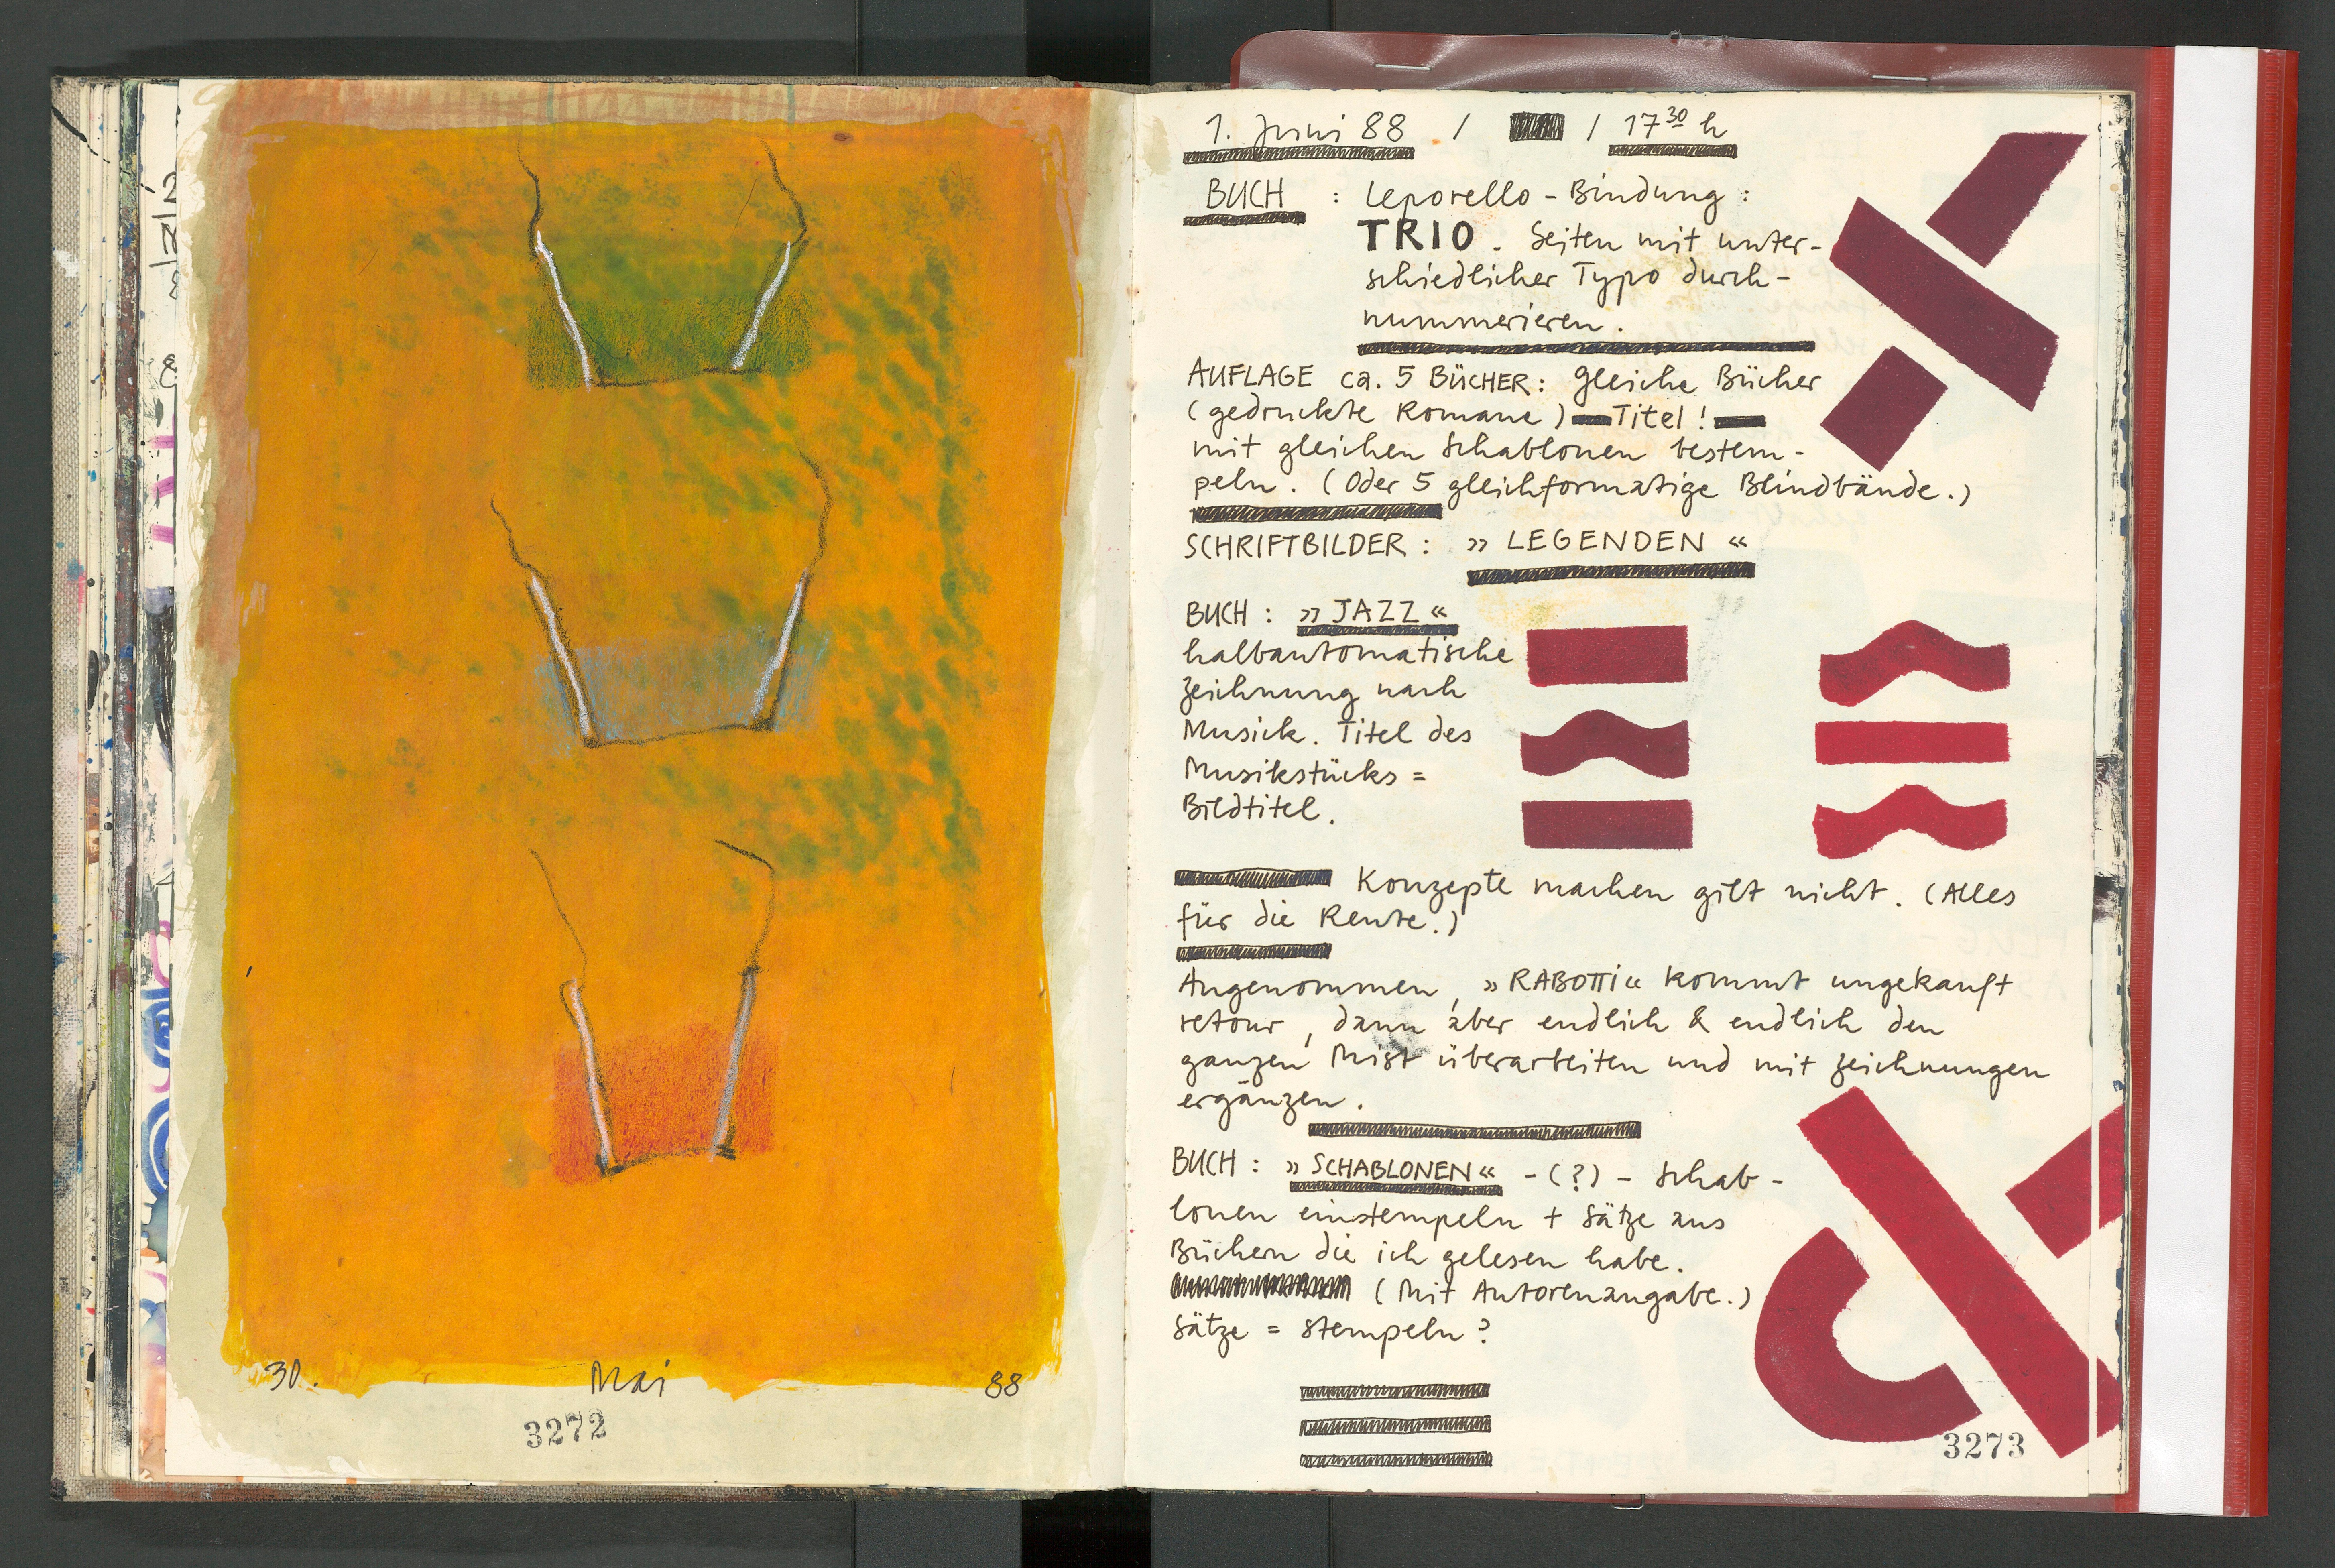 30. Mai 88
3272
1. Juni 88 / / 17 30 h
BUCH : Leporello-Bindung :
TRIO. Seiten mit unter-
schiedlicher Typo durch-
nummerieren.
AUFLAGE ca. 5 BÜCHER: gleiche Bücher
(gedruckte Romane) Titel!
mit gleichen Schablonen bestem-
peln. (Oder 5 gleichformatige Blindbände.)
SCHRIFTBILDER : »LEGENDEN«
BUCH : »JAZZ«
halbautomatische
Zeichnung nach
Musick. Titel des
Musikstücks =
Bildtitel.
Konzepte machen gilt nicht. (Alles
für die Rente.)
Angenommen, »RABOTTI« kommt ungekauft
retour, dann aber endlich & endlich den
ganzen Mist überarbeiten und mit Zeichnungen
ergänzen.
BUCH : »SCHABLONEN« - (?) - Schab-
lonen einstempeln + Sätze aus
Büchern die ich gelesen habe.
(Mit Autorenangabe.)
Sätze = stempeln?
3273